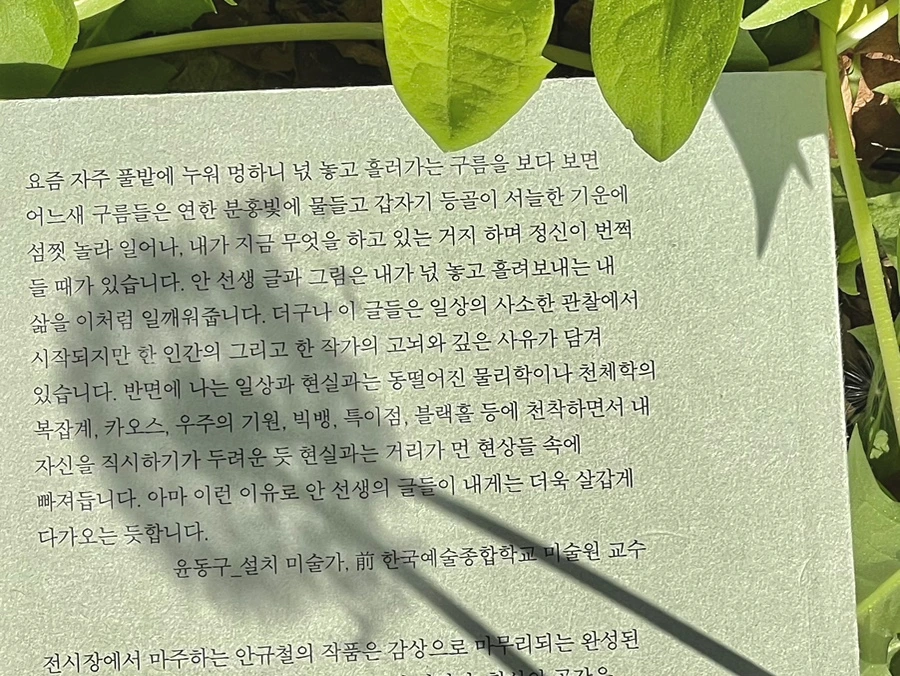 요즘 자주 풀밭에 누워 멍하니 넋 놓고 흘러가는 구름을 보다 보면
어느새 구름들은 연한 분홍빛에 물들고 갑자기 등골이 서늘한 기운에
섬찟 놀라 일어나, 내가 지금 무엇을 하고 있는 거지 하며 정신이 번쩍
들 때가 있습니다. 안 선생 글과 그림은 내가 넋 놓고 흘려보내는 내
삶을 이처럼 일깨워줍니다. 더구나 이 글들은 일상의 사소한 관찰에서
시작되지만 한 인간의 그리고 한 작가의 고뇌와 깊은 사유가 담겨
있습니다. 반면에 나는 일상과 현실과는 동떨어진 물리학이나 천체학의
복잡계, 카오스, 우주의 기원, 빅뱅, 특이점, 블랙홀 등에 천착하면서 내
자신을 직시하기가 두려운 듯 현실과는 거리가 먼 현상들 속에
빠져듭니다. 아마 이런 이유로 안 선생의 글들이 내게는 더욱 살갑게
다가오는 듯합니다.
윤동구_설치 미술가, 前 한국예술종합학교 미술원 교수
전시장에서 마주하는 안규철의 작품은 감상으로 마무리되는 완성된